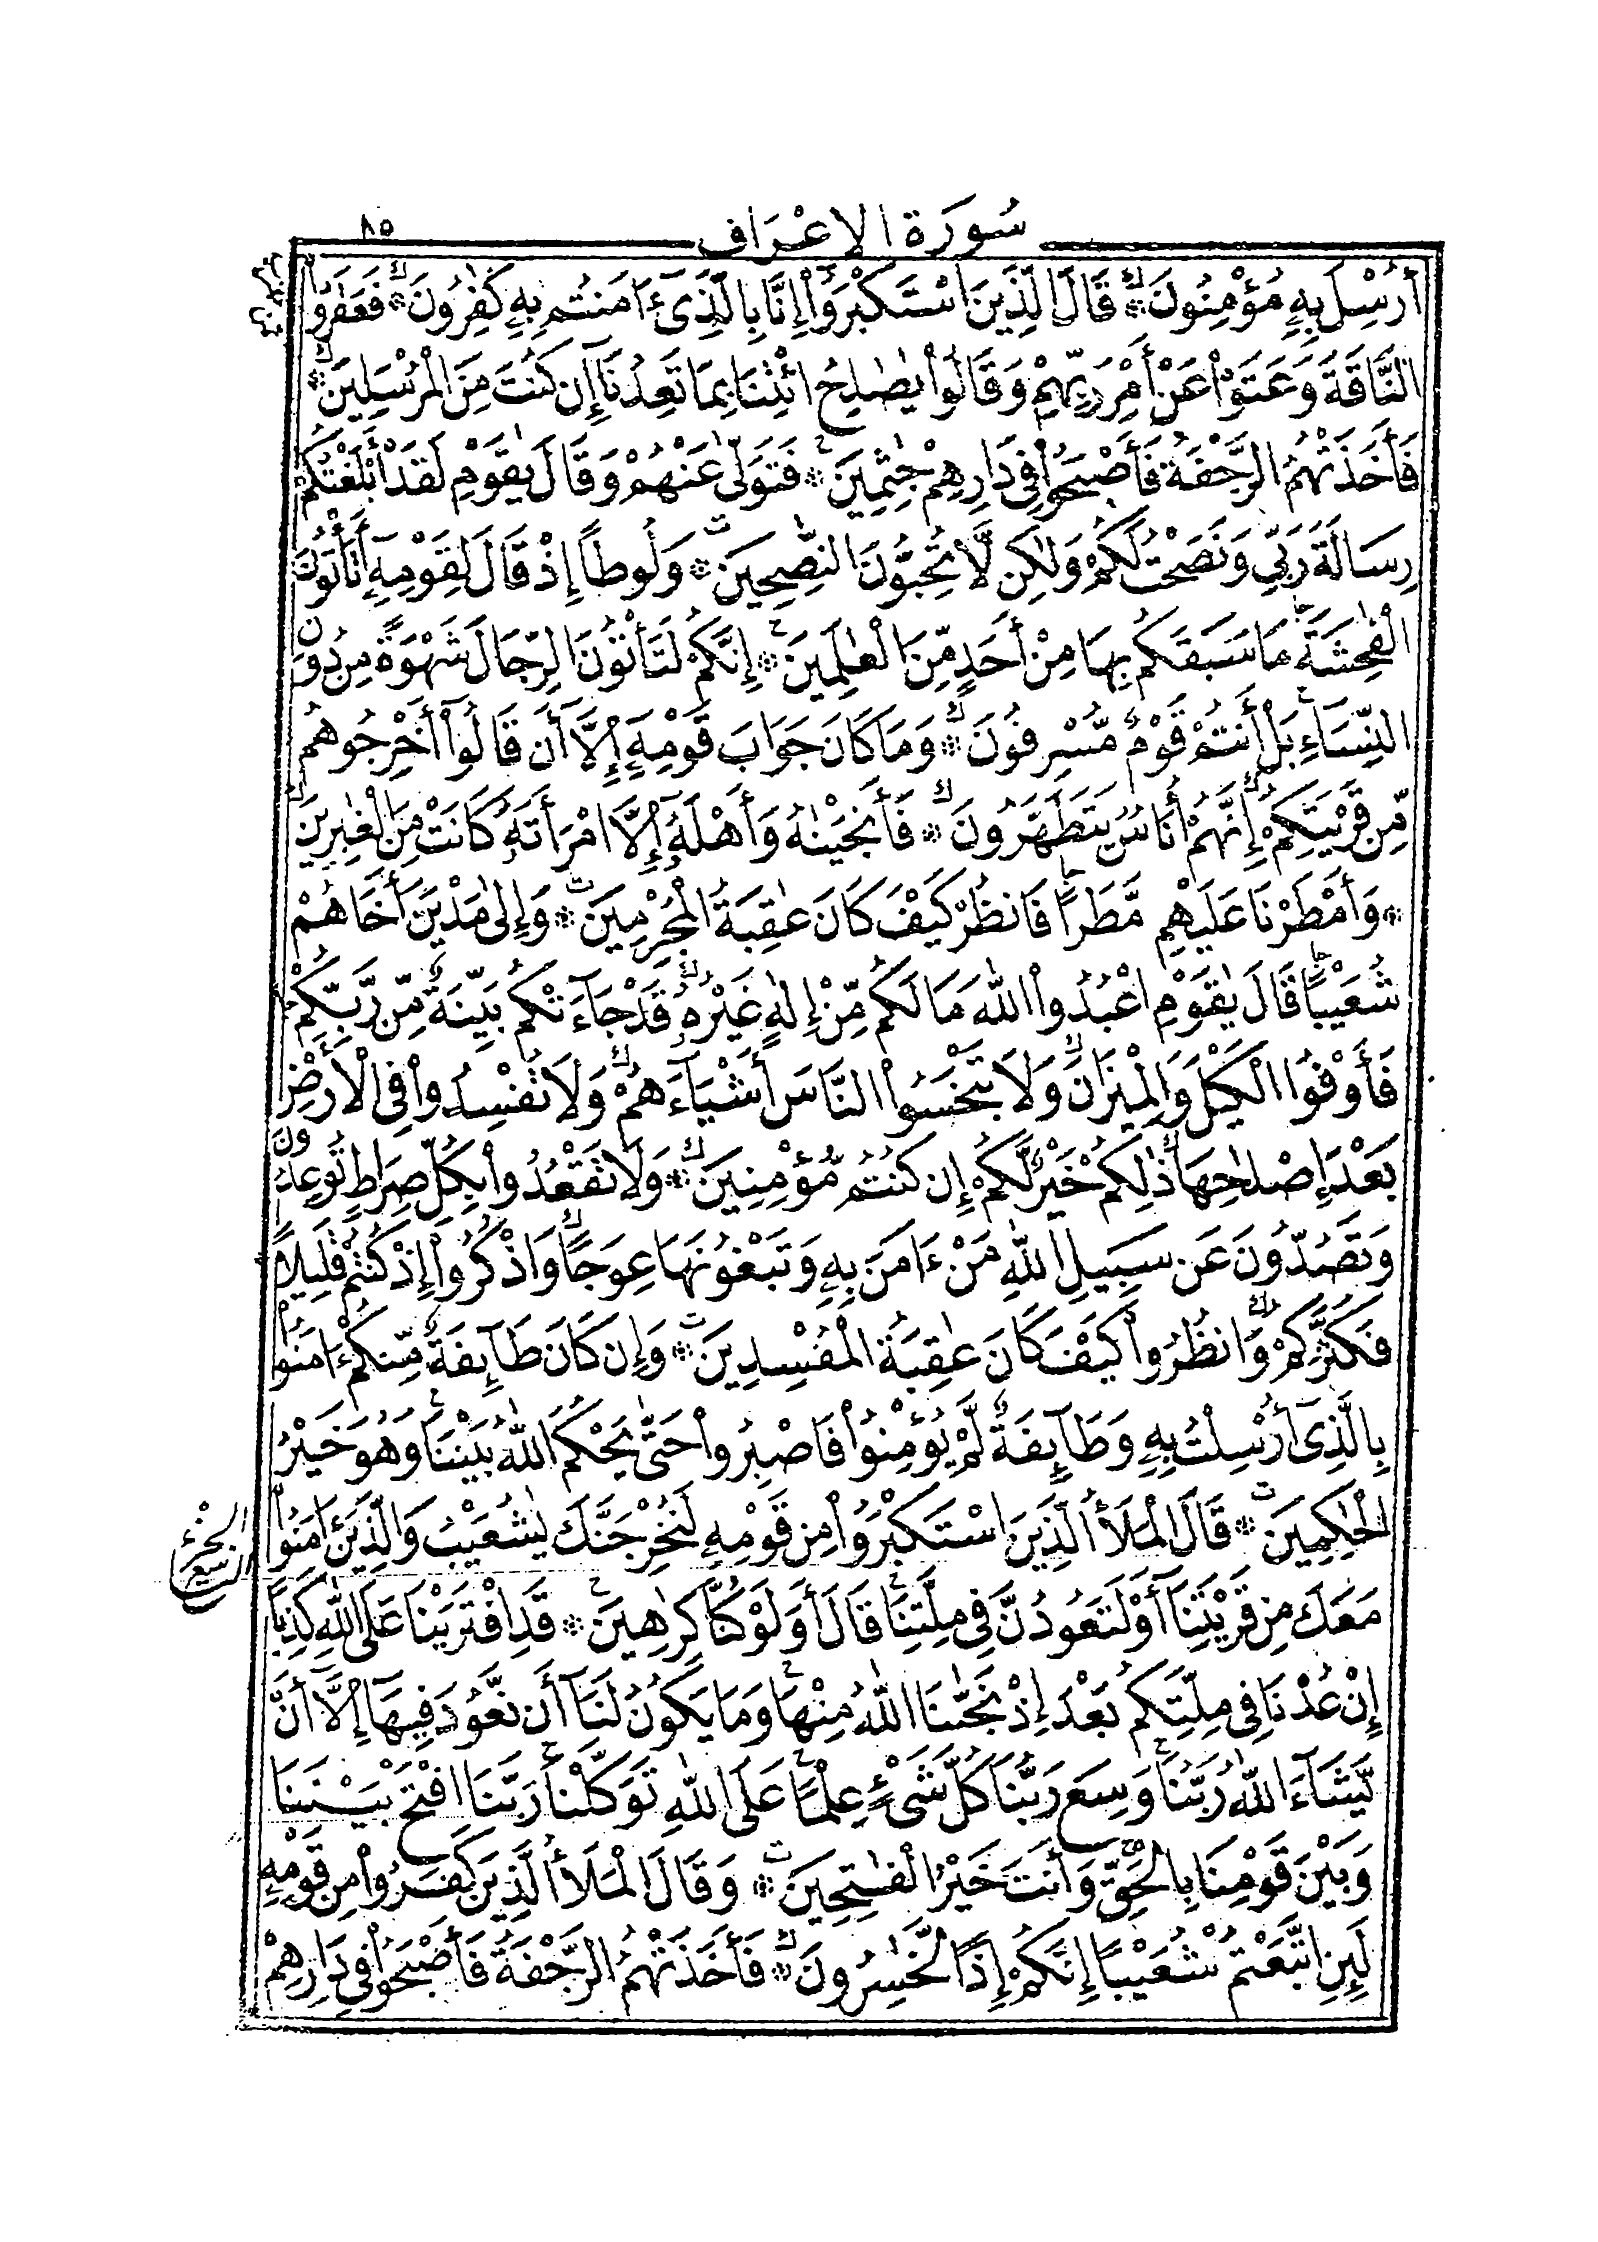 سُورَة الإعْرَاف ٨٥
أُرْسِلَ بِهِۦ مُؤْمِنُونَ ۞ قَالَ الَّذِينَ اسْتَكْبَرُوٓاْ إِنَّا بِالَّذِىٓ ءَامَنتُم بِهِۦ كَٰفِرُونَ ۞ فَعَقَرُواْ
النَّاقَةَ وَعَتَوْاْ عَنْ أَمْرِ رَبِّهِمْ وَقَالُواْ يَٰصَٰلِحُ ائْتِنَا بِمَا تَعِدُنَآ إِن كُنتَ مِنَ الْمُرْسَلِينَ ۞
فَأَخَذَتْهُمُ الرَّجْفَةُ فَأَصْبَحُواْ فِى دَارِهِمْ جَٰثِمِينَ ۞ فَتَوَلَّىٰ عَنْهُمْ وَقَالَ يَٰقَوْمِ لَقَدْ أَبْلَغْتُكُمْ
رِسَالَةَ رَبِّى وَنَصَحْتُ لَكُمْ وَلَٰكِن لَّا تُحِبُّونَ النَّٰصِحِينَ ۞ وَلُوطًا إِذْ قَالَ لِقَوْمِهِۦٓ أَتَأْتُونَ
الْفَٰحِشَةَ مَا سَبَقَكُم بِهَا مِنْ أَحَدٍ مِّنَ الْعَٰلَمِينَ ۞ إِنَّكُمْ لَتَأْتُونَ الرِّجَالَ شَهْوَةً مِّن دُونِ
النِّسَآءِ بَلْ أَنتُمْ قَوْمٌ مُّسْرِفُونَ ۞ وَمَا كَانَ جَوَابَ قَوْمِهِۦٓ إِلَّآ أَن قَالُوٓاْ أَخْرِجُوهُم
مِّن قَرْيَتِكُمْ إِنَّهُمْ أُنَاسٌ يَتَطَهَّرُونَ ۞ فَأَنجَيْنَٰهُ وَأَهْلَهُۥٓ إِلَّا امْرَأَتَهُۥ كَانَتْ مِنَ الْغَٰبِرِينَ
۞ وَأَمْطَرْنَا عَلَيْهِم مَّطَرًا فَانظُرْ كَيْفَ كَانَ عَٰقِبَةُ الْمُجْرِمِينَ ۞ وَإِلَىٰ مَدْيَنَ أَخَاهُمْ
شُعَيْبًا قَالَ يَٰقَوْمِ اعْبُدُواْ اللَّهَ مَا لَكُم مِّنْ إِلَٰهٍ غَيْرُهُۥ قَدْ جَآءَتْكُم بَيِّنَةٌ مِّن رَّبِّكُمْ
فَأَوْفُواْ الْكَيْلَ وَالْمِيزَانَ وَلَا تَبْخَسُواْ النَّاسَ أَشْيَآءَهُمْ وَلَا تُفْسِدُواْ فِى الْأَرْضِ
بَعْدَ إِصْلَٰحِهَا ذَٰلِكُمْ خَيْرٌ لَّكُمْ إِن كُنتُم مُّؤْمِنِينَ ۞ وَلَا تَقْعُدُواْ بِكُلِّ صِرَٰطٍ تُوعِدُونَ
وَتَصُدُّونَ عَن سَبِيلِ اللَّهِ مَنْ ءَامَنَ بِهِۦ وَتَبْغُونَهَا عِوَجًا وَاذْكُرُوٓاْ إِذْ كُنتُمْ قَلِيلًا
فَكَثَّرَكُمْ وَانظُرُواْ كَيْفَ كَانَ عَٰقِبَةُ الْمُفْسِدِينَ ۞ وَإِن كَانَ طَآئِفَةٌ مِّنكُمْ ءَامَنُواْ
بِالَّذِىٓ أُرْسِلْتُ بِهِۦ وَطَآئِفَةٌ لَّمْ يُؤْمِنُواْ فَاصْبِرُواْ حَتَّىٰ يَحْكُمَ اللَّهُ بَيْنَنَا وَهُوَ خَيْرُ
الْحَٰكِمِينَ ۞ قَالَ الْمَلَأُ الَّذِينَ اسْتَكْبَرُواْ مِن قَوْمِهِۦ لَنُخْرِجَنَّكَ يَٰشُعَيْبُ وَالَّذِينَ ءَامَنُواْ
الجزء التاسع
مَعَكَ مِن قَرْيَتِنَآ أَوْ لَتَعُودُنَّ فِى مِلَّتِنَا قَالَ أَوَلَوْ كُنَّا كَٰرِهِينَ ۞ قَدِ افْتَرَيْنَا عَلَى اللَّهِ كَذِبًا
إِنْ عُدْنَا فِى مِلَّتِكُم بَعْدَ إِذْ نَجَّىٰنَا اللَّهُ مِنْهَا وَمَا يَكُونُ لَنَآ أَن نَّعُودَ فِيهَآ إِلَّآ أَن
يَشَآءَ اللَّهُ رَبُّنَا وَسِعَ رَبُّنَا كُلَّ شَىْءٍ عِلْمًا عَلَى اللَّهِ تَوَكَّلْنَا رَبَّنَا افْتَحْ بَيْنَنَا
وَبَيْنَ قَوْمِنَا بِالْحَقِّ وَأَنتَ خَيْرُ الْفَٰتِحِينَ ۞ وَقَالَ الْمَلَأُ الَّذِينَ كَفَرُواْ مِن قَوْمِهِۦ
لَئِنِ اتَّبَعْتُمْ شُعَيْبًا إِنَّكُمْ إِذًا لَّخَٰسِرُونَ ۞ فَأَخَذَتْهُمُ الرَّجْفَةُ فَأَصْبَحُواْ فِى دَارِهِمْ